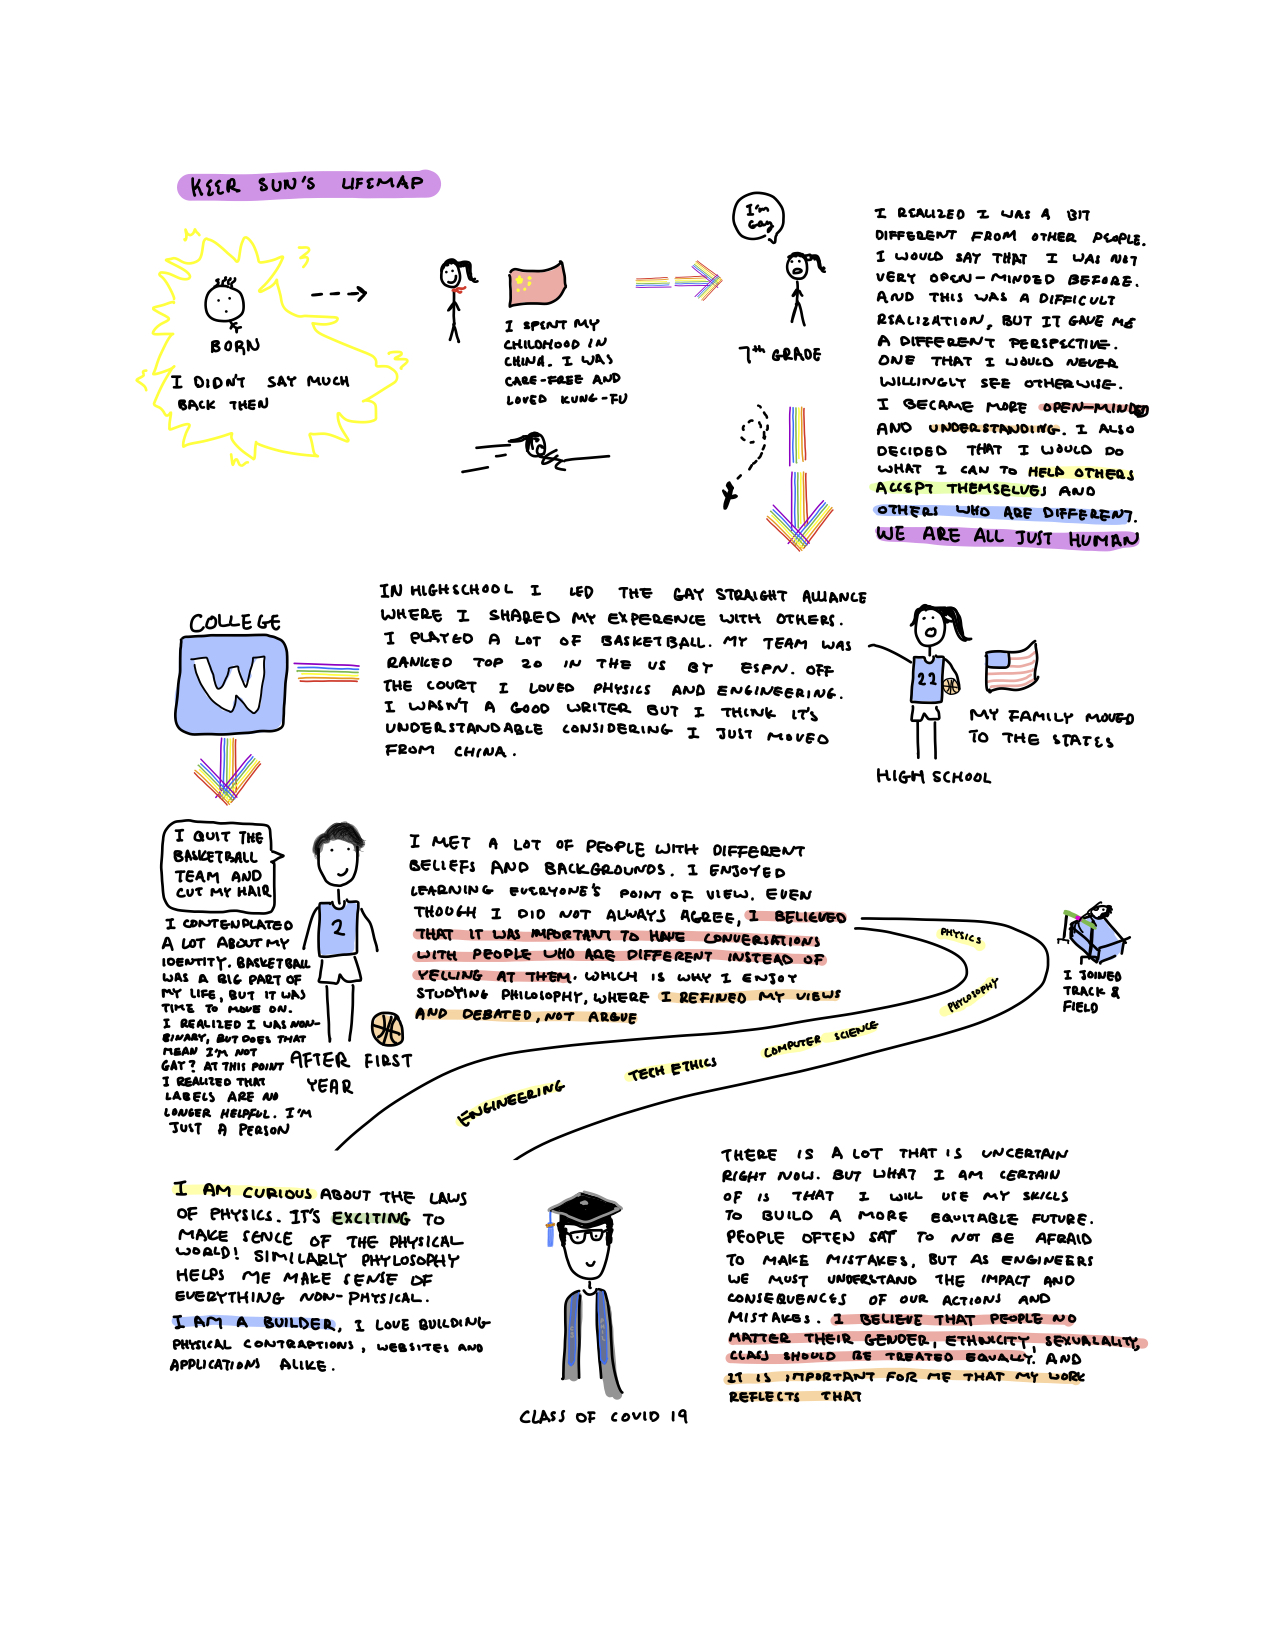 KEER SUN'S LIFEMAP
BORN
I DIDN'T SAY MUCH
BACK THEN
I SPENT MY
CHILDHOOD IN
CHINA. I WAS
CARE-FREE AND
LOVED KUNG-FU
I'm
Gay
7th GRADE
I REALIZED I WAS A BIT
DIFFERENT FROM OTHER PEOPLE.
I WOULD SAY THAT I WAS NOT
VERY OPEN-MINDED BEFORE.
AND THIS WAS A DIFFICULT
REALIZATION, BUT IT GAVE ME
A DIFFERENT PERSPECTIVE.
ONE THAT I WOULD NEVER
WILLINGLY SEE OTHERWISE.
I BECAME MORE OPEN-MINDED
AND UNDERSTANDING. I ALSO
DECIDED THAT I WOULD DO
WHAT I CAN TO HELD OTHERS
ACCEPT THEMSELVES AND
OTHERS WHO ARE DIFFERENT.
WE ARE ALL JUST HUMAN
22
MY FAMILY MOVED
TO THE STATES
HIGH SCHOOL
IN HIGHSCHOOL I LED THE GAY STRAIGHT ALLIANCE
WHERE I SHARED MY EXPERENCE WITH OTHERS.
I PLAYED A LOT OF BASKETBALL. MY TEAM WAS
RANKED TOP 20 IN THE US BY ESPN. OFF
THE COURT I LOVED PHYSICS AND ENGINEERING.
I WASN'T A GOOD WRITER BUT I THINK IT'S
UNDERSTANDABLE CONSIDERING I JUST MOVED
FROM CHINA.
COLLEGE
W
I QUIT THE
BASKETBALL
TEAM AND
CUT MY HAIR
I CONTENPLATED
A LOT ABOUT MY
IDENTITY. BASKETBALL
WAS A BIG PART OF
MY LIFE, BUT IT WAS
TIME TO MOVE ON.
I REALIZED I WAS NON-
BINARY, BUT DOES THAT
MEAN I'M NOT
GAY? AT THIS POINT
I REALIZED THAT
LABELS ARE NO
LONGER HELPFUL. I'M
JUST A PERSON
2
AFTER FIRST
YEAR
I MET A LOT OF PEOPLE WITH DIFFERENT
BELIEFS AND BACKGROUNDS. I ENJOYED
LEARNING EVERYONE'S POINT OF VIEW. EVEN
THOUGH I DID NOT ALWAYS AGREE, I BELIEVED
THAT IT WAS IMPORTANT TO HAVE CONVERSATIONS
WITH PEOPLE WHO ARE DIFFERENT INSTEAD OF
YELLING AT THEM. WHICH IS WHY I ENJOY
STUDYING PHILOSOPHY, WHERE I REFINED MY VIEWS
AND DEBATED, NOT ARGUE
I JOINED
TRACK &
FIELD
PHYSICS
PHYLOSOPHY
COMPUTER SCIENCE
TECH ETHICS
ENGINEERING
I AM CURIOUS ABOUT THE LAWS
OF PHYSICS. IT'S EXCITING TO
MAKE SENCE OF THE PHYSICAL
WORLD! SIMILARLY PHYLOSOPHY
HELPS ME MAKE SENSE OF
EVERYTHING NON-PHYSICAL.
I AM A BUILDER, I LOVE BUILDING
PHYSICAL CONTRAPTIONS, WEBSITES AND
APPLICATIONS ALIKE.
CLASS OF COVID 19
THERE IS A LOT THAT IS UNCERTAIN
RIGHT NOW. BUT WHAT I AM CERTAIN
OF IS THAT I WILL USE MY SKILLS
TO BUILD A MORE EQUITABLE FUTURE.
PEOPLE OFTEN SAY TO NOT BE AFRAID
TO MAKE MISTAKES, BUT AS ENGINEERS
WE MUST UNDERSTAND THE IMPACT AND
CONSEQUENCES OF OUR ACTIONS AND
MISTAKES. I BELIEVE THAT PEOPLE NO
MATTER THEIR GENDER, ETHNICITY, SEXUALALITY,
CLASS SHOULD BE TREATED EQUALLY. AND
IT IS IMPORTANT FOR ME THAT MY WORK
REFLECTS THAT